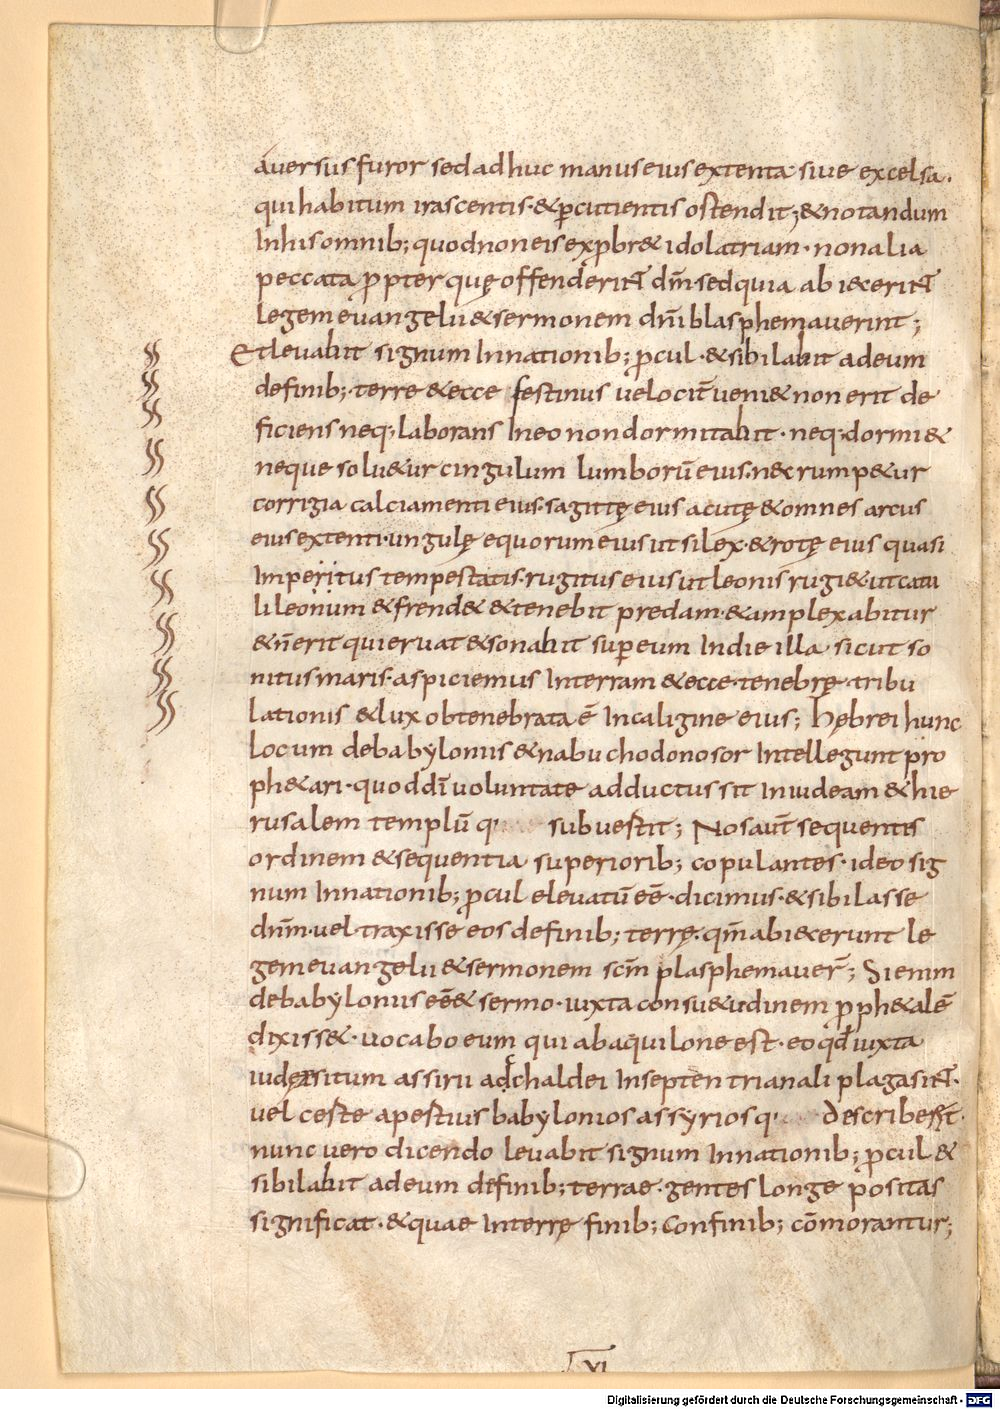 auersus furor sed adhuc manus eius extenta siue excelsa.
qui habitum irascentis·&p̄cutientis ostendit;&notandum
Inhis omnib; quod non eis exp̄br& idolatriam· non alia
peccata p̄pter quę offenderint dm̄·sed quia abi&cerint
legem euangelii & sermonem dn̄i blasphemauerint;
Et leuabit signum Innationib; p̄cul·&sibilabit ad eum
definib;·terre & ecce festinus uelocit̄ ueni& non erit de
ficiens neq; laborans Ineo non dormitabit· neq; dormi&
neque solu&ur cingulum lumborū eius·n&c rump&ur
corrigia calciamenti eius·sagittę eius acutę & omnes arcus
eius extenti·ungulę equorum eius ut silex·&rotę eius quasi
Imperitus tempestatis·rugitus eius ut leonis rugi& ut catu
li leonum & frend& & tenebit predam·& amplexabitur
& n̄ erit qui eruat & sonabit sup eum Indie illa sicut so
nitus maris·aspiciemus Interram & ecce·tenebrę·tribu
lationis & lux obtenebrata ē Incaligine eius; hębrei hunc
locum debabylonis & nabuchodonosor Intellegunt pro
ph&ari·quod dī uoluntate adductus sit Iniudeam & hie
rusalem templū q· subuestit; Nos aut̄ sequentis
ordinem & sequentia superiorib; copulantes·ideo sig
num Innationib; p̄cul eleuatū eē·dicimus·& sibilasse
dn̄m·uel traxisse eos definib; terrę·qm̄ abi&cerunt le
gem euangelii & sermonem scm̄ plasphemauer̄; Si enim
debabylonis eē& sermo·iuxta consu&udinem p̄ph&alē
dixiss&·uocabo eum qui abaquilone est·eo qd̄ iuxta
iudę situm assirii ac chaldei Inseptentrianali plaga sint·
uel ceste apestiuis babylonios assyrios q· describess&·
nunc uero dicendo leuabit signum Innationib; p̄cul &
sibilabit ad eum definib; terrae·gentes longe positas
significat·& quae Interrę finib; confinib; cōmorantur;
VI
Digitalisierung gefördert durch die Deutsche Forschungsgemeinschaft - DFG